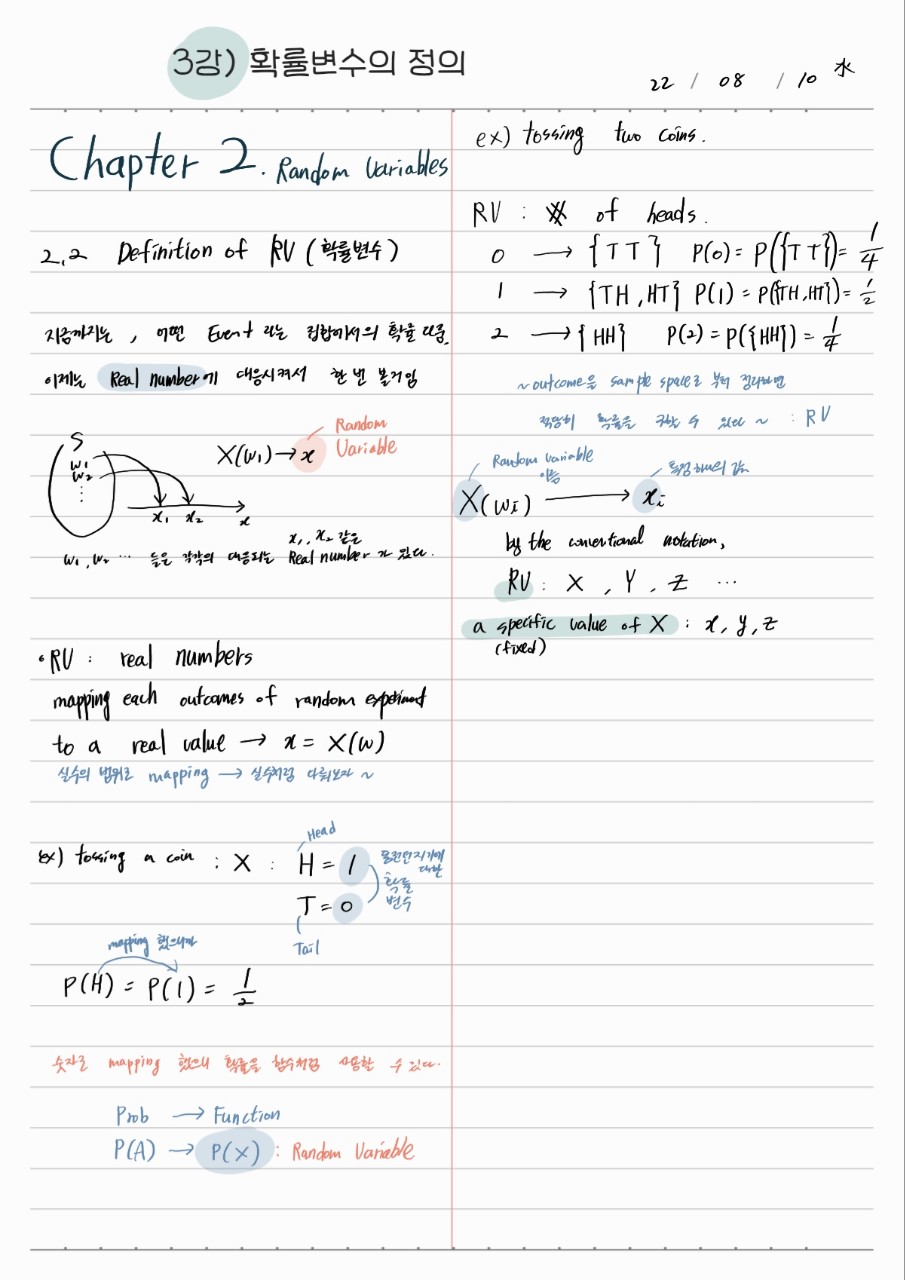 3강) 확률변수의 정의
22 / 08 / 10 水
Chapter 2. Random Variables
2.2 Definition of RV (확률변수)
지금까지는, 어떤 Event 라는 집합에서의 확률 다룸.
이제는 Real number에 대응시켜서 한 번 볼거임
S
w1
w2
⋮
x1 x2 x
X(w1) → x
Random
Variable
x1, x2 같은
w1, w2 … 들은 각각의 대응되는 Real number 가 있다.
•RV : real numbers
mapping each outcomes of random experiment
to a real value → x = X(w)
실수의 범위로 mapping → 실수처럼 다뤄보자 ~
Head
ex) tossing a coin : X : H = 1
T = 0
Tail
동전던지기에
대한
확률
변수
mapping 했으니까
P(H) = P(1) = 1/2
숫자로 mapping 했으니 확률을 함수처럼 사용할 수 있다.
Prob → Function
P(A) → P(X) : Random Variable
ex) tossing two coins.
RV : # of heads.
0 → {TT} P(0) = P({TT}) = 1/4
1 → {TH, HT} P(1) = P({TH, HT}) = 1/2
2 → {HH} P(2) = P({HH}) = 1/4
~ outcome을 sample space로 부터 정의하면
적당히 확률을 구할 수 있다 ~ : RV
Random variable
이름
특정 하나의 값
X(wi) → xi
by the conventional notation,
RV : X , Y , Z …
a specific value of X : x, y, z
(fixed)